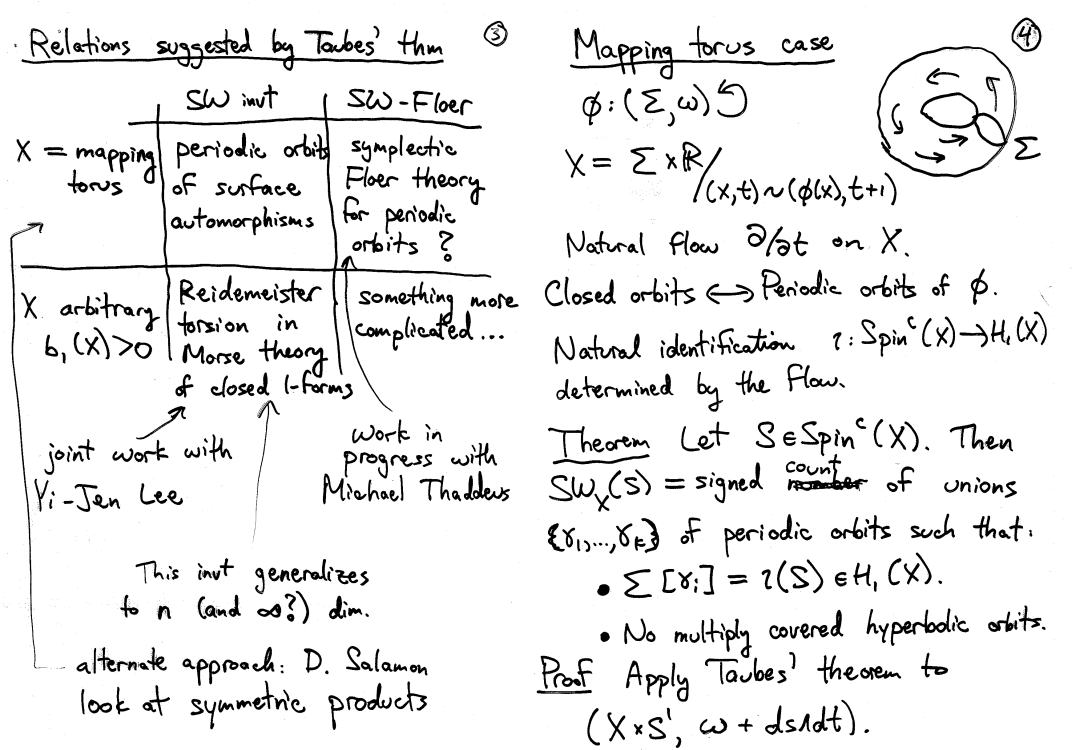 Relations suggested by Taubes' thm
③
SW invt
SW-Floer
X = mapping torus
periodic orbits
of surface
automorphisms
symplectic
Floer theory
for periodic
orbits ?
X arbitrary
b₁(X)>0
Reidemeister
torsion in
Morse theory
of closed 1-forms
something more
complicated...
joint work with
Yi-Jen Lee
work in
progress with
Michael Thaddeus
This invt generalizes
to n (and ∞?) dim.
alternate approach: D. Salamon
look at symmetric products
Mapping torus case
④
φ: (Σ, ω) ↺
Σ
X = Σ × ℝ / (x,t) ~ (φ(x), t+1)
Natural flow ∂/∂t on X.
Closed orbits ↔ Periodic orbits of φ.
Natural identification ι: Spinᶜ(X) → H₁(X)
determined by the flow.
Theorem Let S ∈ Spinᶜ(X). Then
SW_X(S) = signed count of unions
{γ₁,...,γₖ} of periodic orbits such that:
• Σ [γᵢ] = ι(S) ∈ H₁(X).
• No multiply covered hyperbolic orbits.
Proof Apply Taubes' theorem to
(X × S¹, ω + ds∧dt).